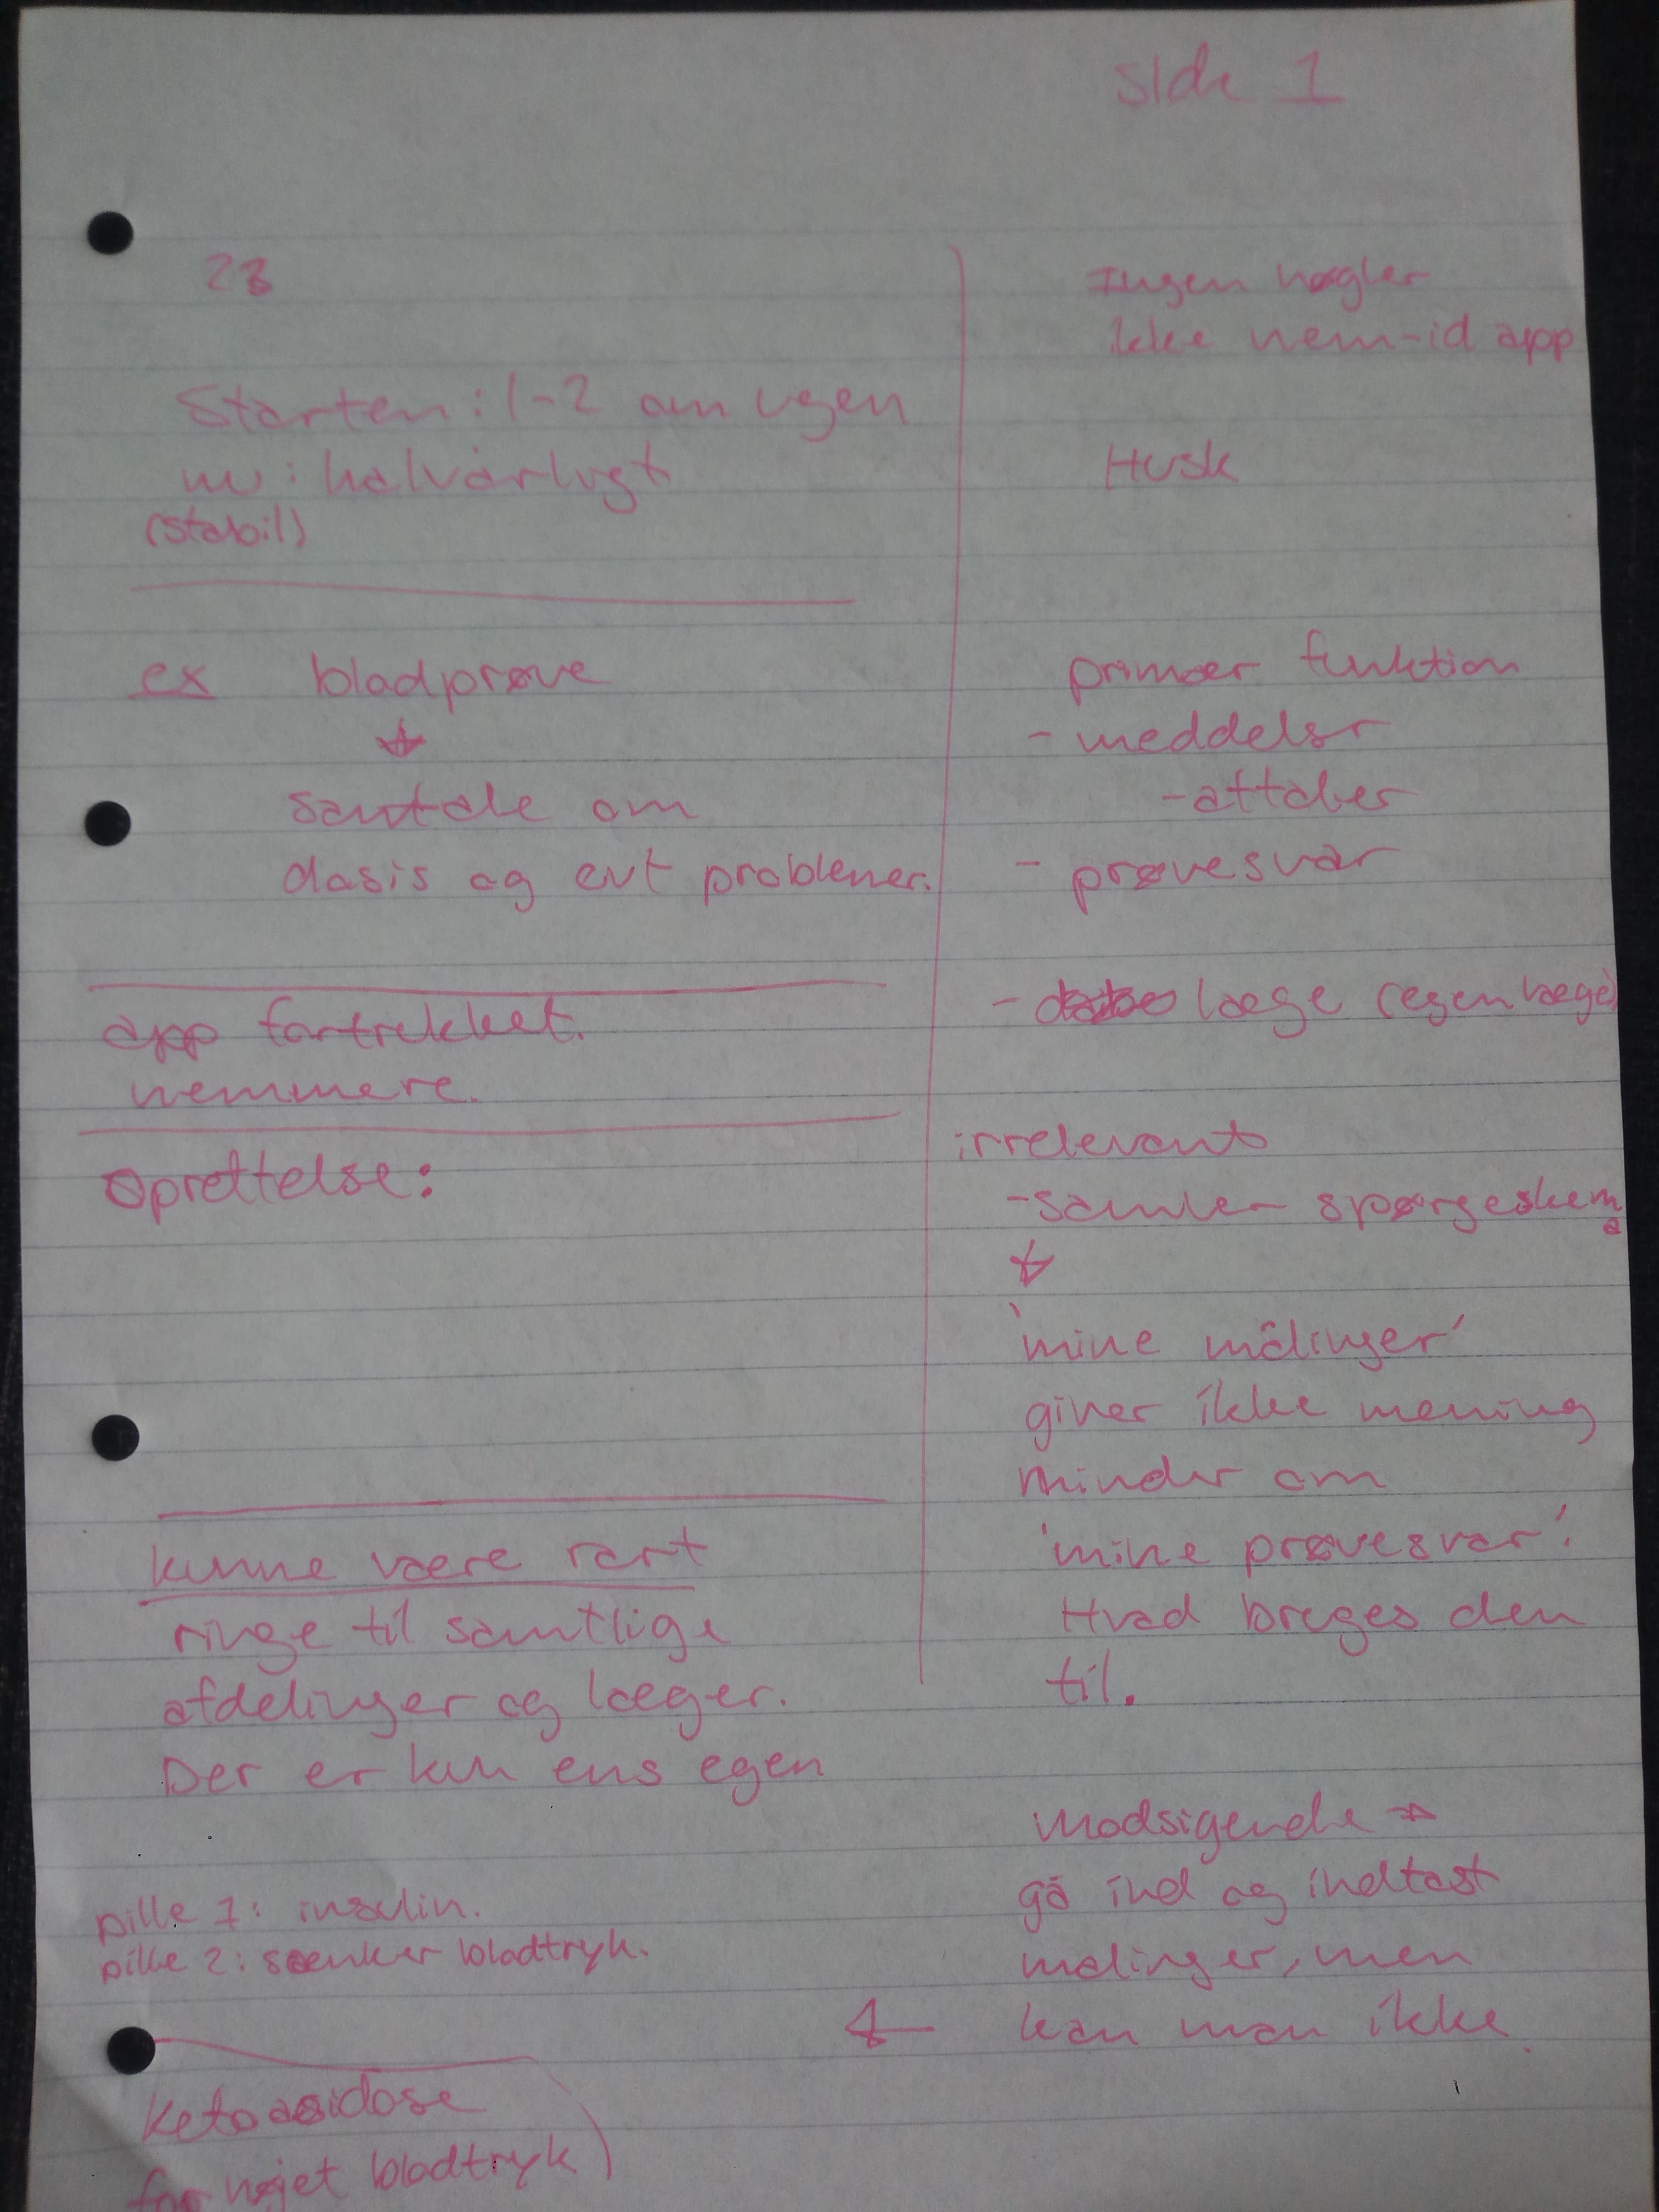 side 1
23
Starten: 1-2 om ugen
nu: halvårligt
(stabil)
ex blodprøve
samtale om
dosis og evt problemer.
app fortrukket.
nemmere.
Oprettelse:
kunne være rart
ringe til samtlige
afdelinger og læger.
Der er kun ens egen
pille 1: insulin.
pille 2: sænker blodtryk.
Ketoasidose
forhøjet blodtryk)
Ingen nøgler
ikke nem-id app
Husk
primær funktion
- meddelser
- aftaler
- prøvesvar
- læge (egen læge)
irrelevant
- samler spørgeskema
'mine målinger'
giver ikke mening
minder om
'mine prøvesvar'.
Hvad bruges den
til.
Modsigende →
gå ind og indtast
målinger, men
kan man ikke
←